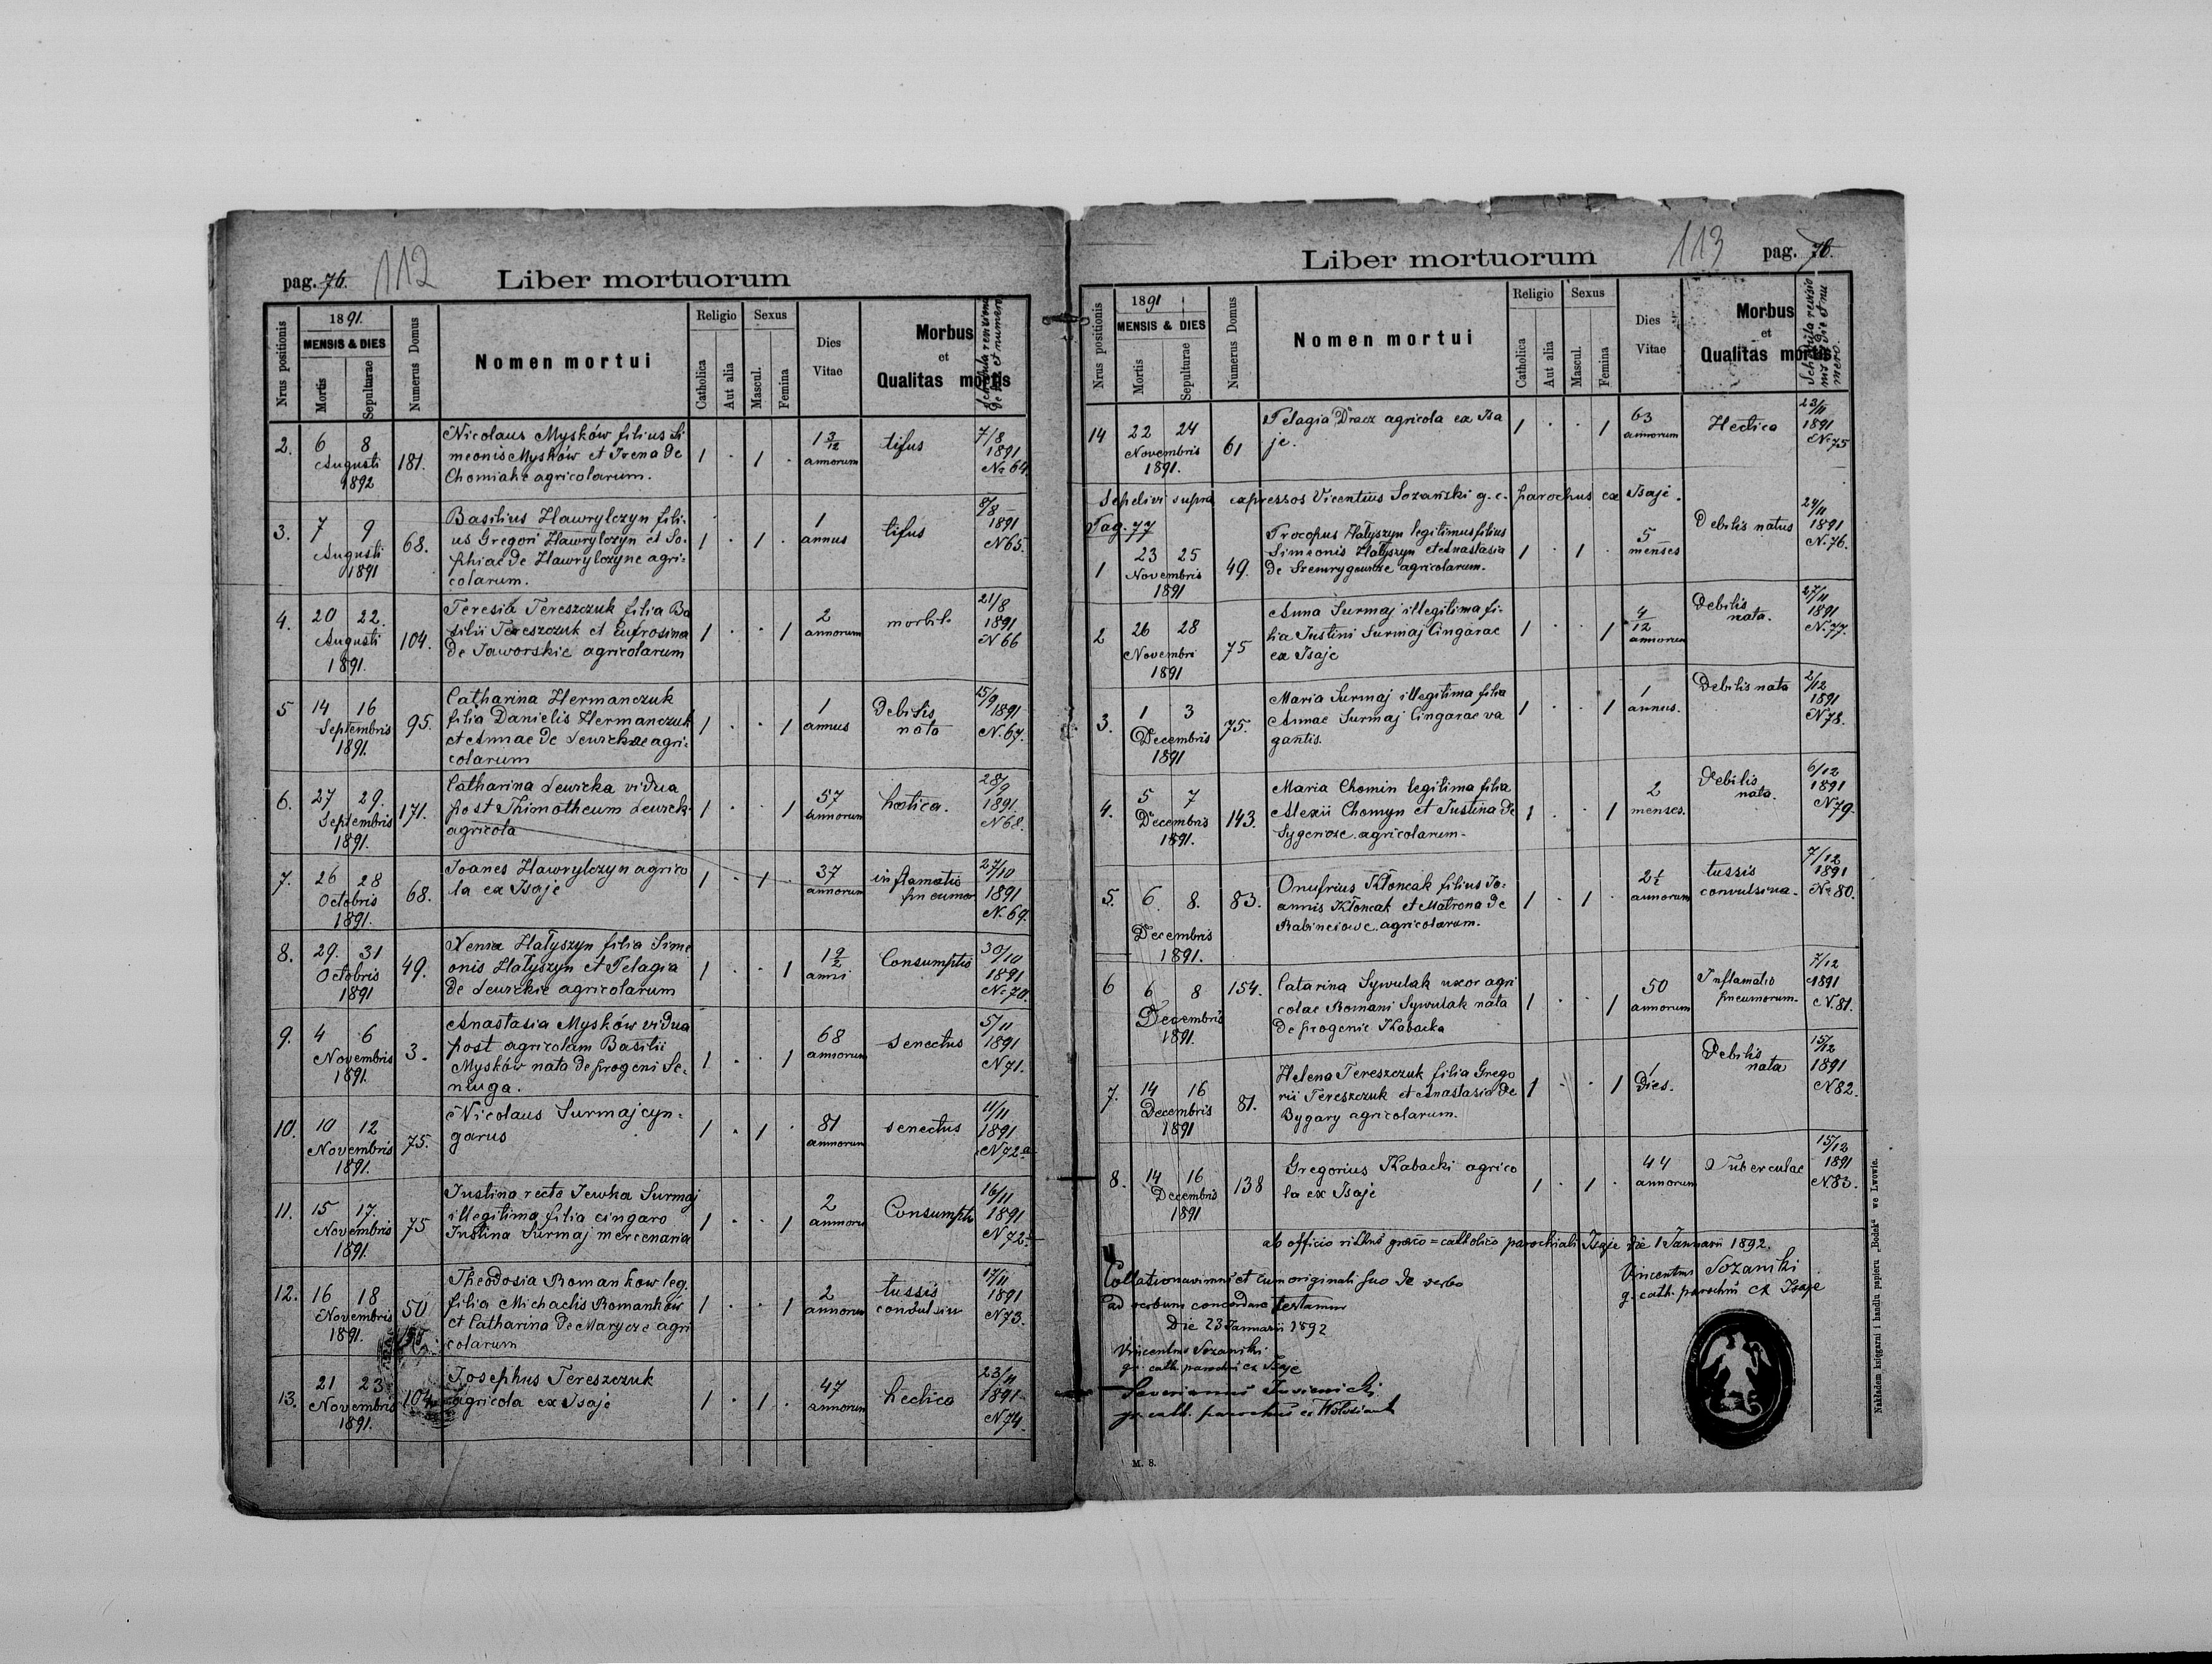 pag. 76. 112 Liber mortuorum
Nrus positionis
1891.
MENSIS & DIES
Mortis
Sepulturae
Numerus Domus
Nomen mortui
Religio
Catholica
Aut alia
Sexus
Mascul.
Femina
Dies
Vitae
Morbus
et
Qualitas mortis
2. 6 8 Augusti 1892 181.
Nicolaus Mysków filius Si
meonis Mysków et Irena de
Chomiake agricolarum.
1 . 1 . 1 3/12 annorum tifus 7/8 1891 No 64.
3. 7 9 Augusti 1891 68.
Basilius Hawrylczyn fili-
us Gregori Hawrylczyn et So-
phiae de Hawrylczyne agri-
colarum.
1 . 1 . 1 annus tifus 8/8 1891 N 65.
4. 20 22. Augusti 1891. 104.
Teresia Tereszczuk filia Ba
silii Tereszczuk et Eufrosina
de Jaworskie agricolarum
1 . . 1 2 annorum 21/8 1891 N 66
5 14 16 Septembris 1891. 95.
Catharina Hermanczuk
filia Danielis Hermanczuk
et Annae de Lewickze agri-
colarum
1 . . 1 1 annus Debilis nata 15/9 1891 N. 67.
6. 27 29. Septembris 1891. 171.
Catharina Lewicka vidua
post Thimotheum Lewick
agricola
1 . . 1 57 annorum hectica. 28/9 1891. N 68.
7. 26 28 Octobris 1891. 68.
Joanes Hawrylczyn agrico
la ex Isaje
1 . 1 . 37 annorum inflamatio pneumor 27/10 1891 N. 69.
8. 29. 31 Octobris 1891 49.
Xenia Hałyszyn filia Sime
onis Hałyszyn et Pelagia
de Lewickie agricolarum
1 . . 1 1 9/2 anni Consumptio 30/10 1891 No 70.
9. 4 6 Novembris 1891. 3.
Anastasia Mysków vidua
post agricolam Basilii
Mysków nata de progeni Se-
niuga.
1 . . 1 68 annorum senectus 5/11 1891 N 71.
10. 10 12 Novembris 1891. 75.
Nicolaus Surmaj cyn-
garus
1 . 1 . 81 annorum senectus 11/11 1891 N 72 a
11. 15 17. Novembris 1891. 75
Justina recte Jewka Surmaj
illegitima filia cingaro
Justina Surmaj mercenaria
1 . . 1 2 annoru Consumptio 16/11 1891 N 72
12. 16 18 Novembris 1891. 50
Theodosia Romankow leg.
filia Michaelis Romanków
et Catharina de Marycze agri
colarum
1 . . 1 2 annorum tussis convulsiv 17/11 1891 N 73.
13. 21 23 Novembris 1891. 104
Josephus Tereszczuk
agricola ex Isaje
1 . 1 . 47 annorum hectica 23/11 1891 N 74.
Liber mortuorum 113 pag. 76.
Nrus positionis
1891
MENSIS & DIES
Mortis
Sepulturae
Numerus Domus
Nomen mortui
Religio
Catholica
Aut alia
Sexus
Mascul.
Femina
Dies
Vitae
Morbus
et
Qualitas mortis
14 22 24 Novembris 1891. 61
Pelagia Dracz agricola ex Isa
je.
1 . . 1 63 annorum Hectica 23/11 1891 No 75
Sepelivi supra expressos Vicentius Sozański g. c. parochus ex Isaje.
Pag. 77
1 23 25 Novembris 1891 49.
Procopus Hałyszyn legitimus filius
Simeonis Hałyszyn et Anastasia
de agricolarum.
1 . 1 . 5 menses Debilis natus 24/11 1891 N. 76.
2 26 28 Novembri 1891 75
Anna Surmaj illegitima fi-
lia Justini Surmaj Cingarae
ex Isaje
1 . . 1 4/12 annorum Debilis nata. 27/11 1891 N. 77.
3. 1 3 Decembris 1891 75.
Maria Surmaj illegitima filia
Annae Surmaj Cingarae va
gantis.
1 . . 1 1 annus. Debilis nata 2/12 1891 N 78.
4. 5 7 Decembris 1891. 143.
Maria Chomin legitima filia
Alexii Chomyn et Justina de
agricolarum.
1 . 1 2 menses. Debilis nata. 6/12 1891 N 79.
5. 6. 8. Decembris 1891. 83.
Onufrius Kłoncak filius Jo-
annis Kłoncak et Matrona de
Rabinciowe agricolarum.
1 . 1 . 2 1/2 annorum tussis convulsiva. 7/12 1891 No 80.
6 6 8 Decembris 1891. 154.
Catarina Sywulak uxor agri
colae Romani Sywulak nata
de progenie Kabacka
1 . . 1 50 annorum Inflamatio pneumorum. 7/12 1891 N. 81.
7. 14 16 Decembris 1891 81.
Helena Tereszczuk filia Grego
rii Tereszczuk et Anastasia de
Bygary agricolarum.
1 . . 1 1 dies. Debilis nata 15/12 1891 N 82.
8. 14 16 Decembris 1891 138
Gregorius Kabacki agrico
la ex Isaje
1 . 1 . 44 annorum Tuberculae 15/12 1891 N. 83.
ab officio ritus graeco=catholico parochiali Isaje die 1 Januarii 1892.
Vincentius Sozanski
g. cath. parochus ex Isaje
Collationavimus et cum originali suo de verbo
ad verbum concordare testamur
Die 23 Januarii 1892
Vincentius Sozanski
gr. cath. parochus ex Isaje
gr. cath. parochus
M. 8.
Nakładem księgarni i handlu papieru „Bodek“ we Lwowie.